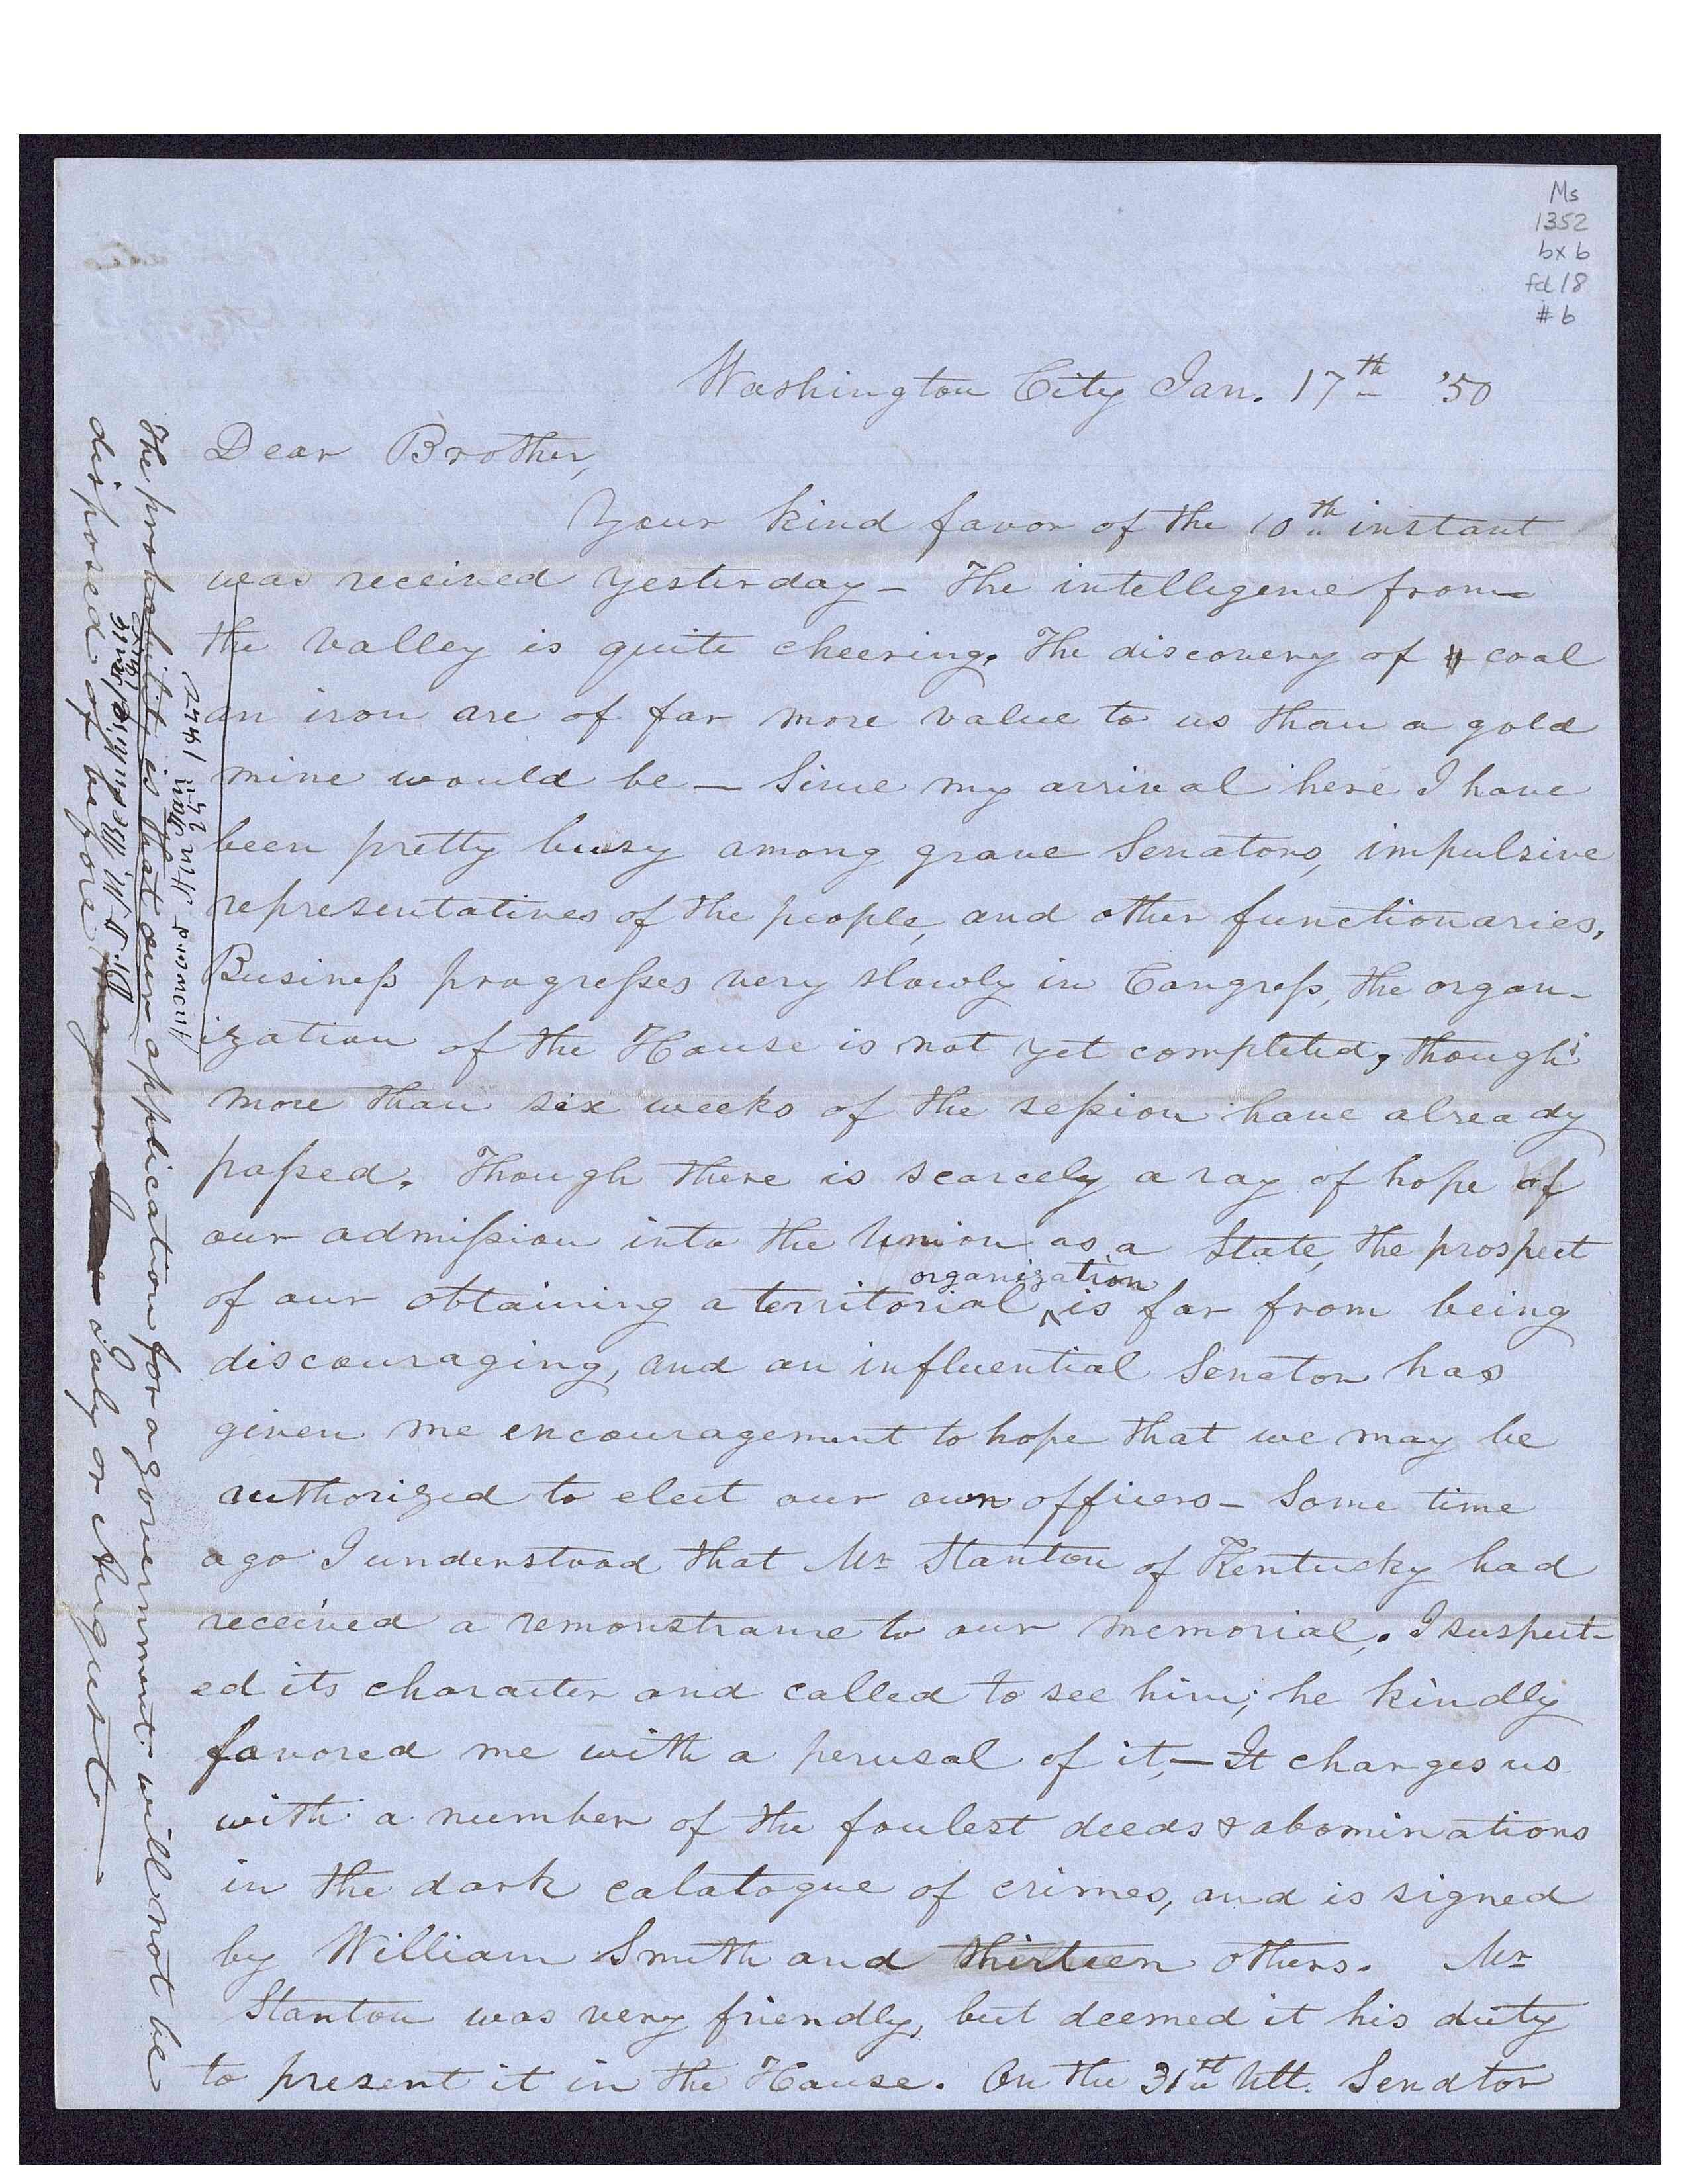 Ms
1352
bx 6
fd 18
# 6
Washington City Jan. 17th '50
Dear Brother,
Your kind favor of the 10th instant
was received yesterday – The intelligence from
the valley is quite cheering. The discovery of coal
an iron are of far more value to us than a gold
mine would be – Since my arrival here I have
been pretty busy among grave Senators, impulsive
representatives of the people, and other functionaries,
Business progresses very slowly in Congress, the organ-
ization of the House is not yet completed, though
more than six weeks of the session have already
passed. Though there is scarcely a ray of hope of
our admission into the Union as a State, the prospect
of our obtaining a territorial organization is far from being
discouraging, and an influential Senator has
given me encouragement to hope that we may be
authorized to elect our own officers – Some time
ago I understood that Mr Stanton of Kentucky had
received a remonstrance to our memorial. I suspect-
ed its character and called to see him; he kindly
favored me with a perusal of it, – It charges us
with a number of the foulest deeds & abominations
in the dark calatogue of crimes, and is signed
by William Smith and thirteen others. Mr
Stanton was very friendly, but deemed it his duty
to present it in the House. On the 31st Ult. Senator
The probability is that our application for a government will not be
disposed of before July or August –